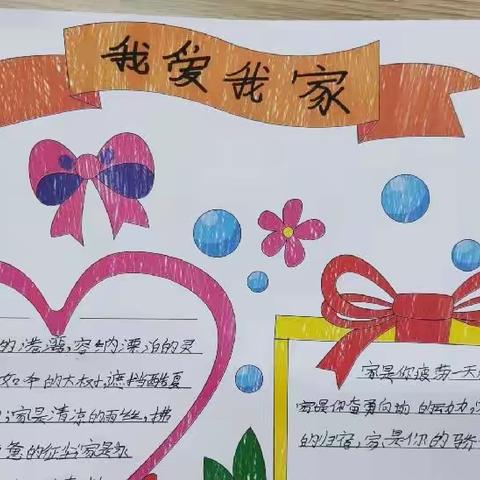 我爱我家
的港湾,容纳漂泊的灵
如伞的大树,遮挡酷夏
家是清凉的雨丝,拂
惫的征尘家是永
家是你疲劳一天
家是你奋勇向场的动力,
的归宿,家是你的